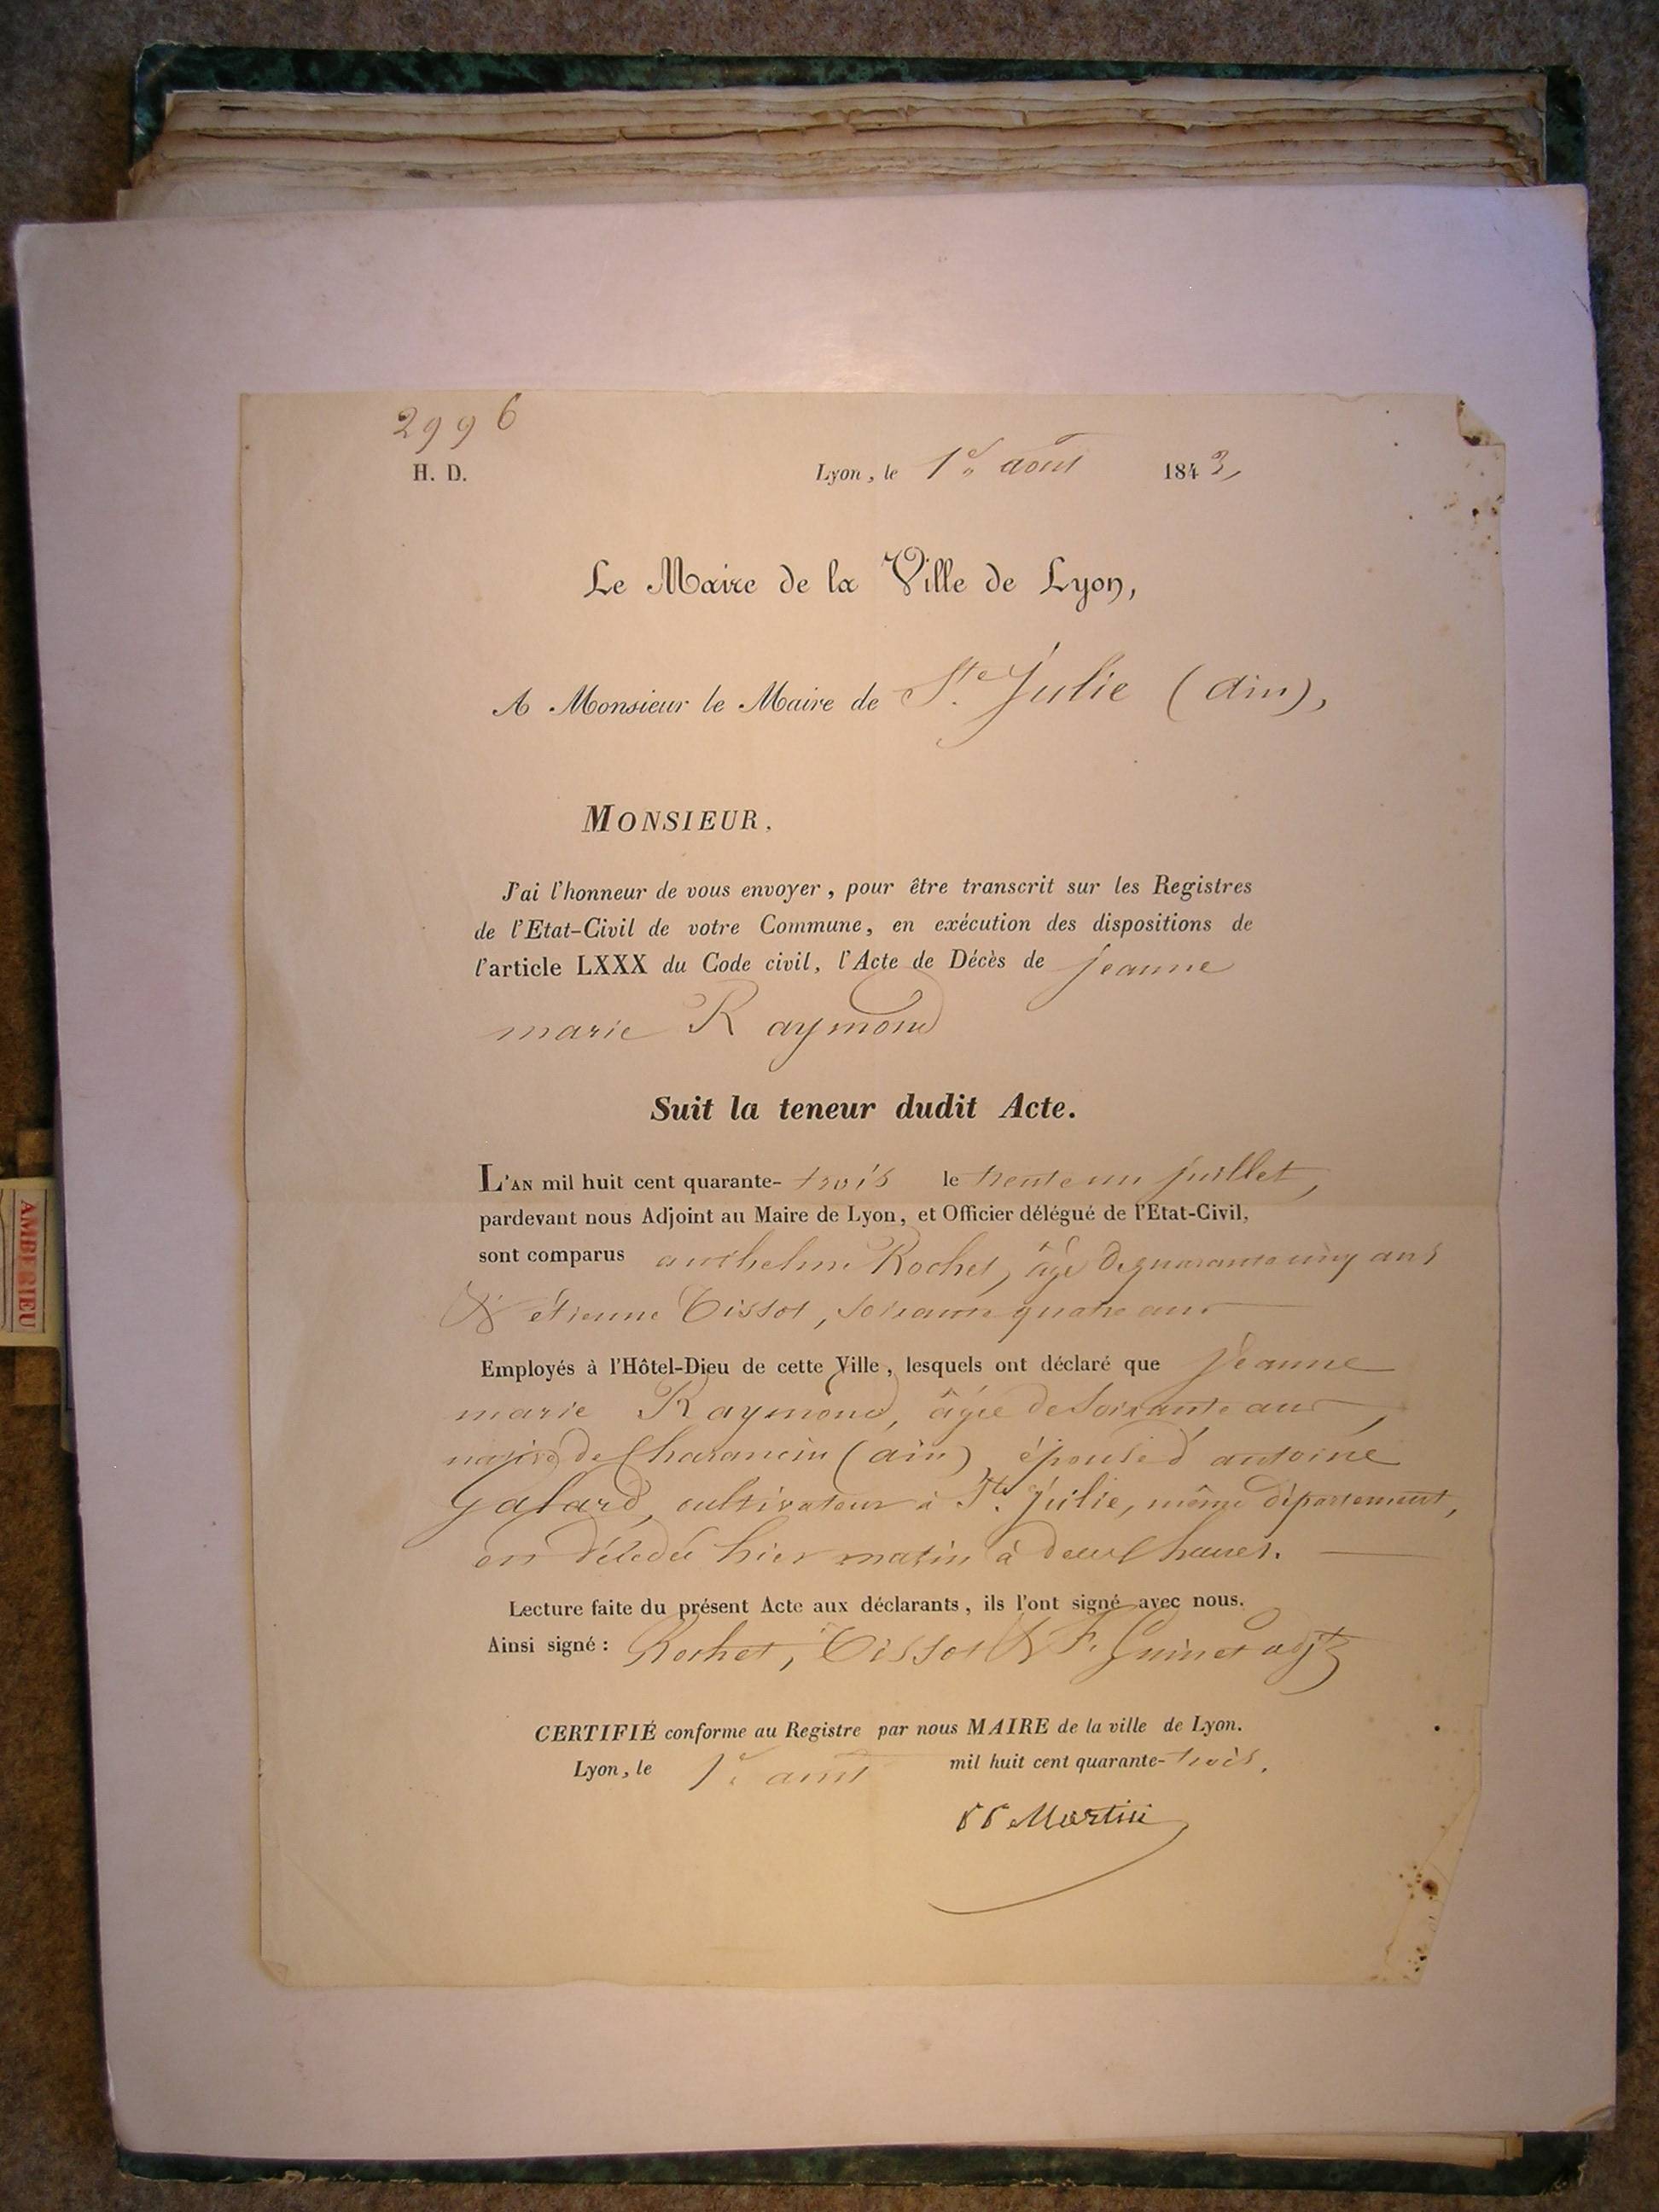 2996
H. D.
Lyon, le 1er août 1843,
Le Maire de la Ville de Lyon,
A Monsieur le Maire de Ste Julie (ain),
MONSIEUR,
J'ai l'honneur de vous envoyer, pour être transcrit sur les Registres
de l'Etat-Civil de votre Commune, en exécution des dispositions de
l'article LXXX du Code civil, l'Acte de Décès de jeanne
marie Raymond
Suit la teneur dudit Acte.
L'AN mil huit cent quarante-trois le trente un juillet,
pardevant nous Adjoint au Maire de Lyon, et Officier délégué de l'Etat-Civil,
sont comparus anthelme Rochet, âgé de quarante cinq ans
& étienne Tissot, soixante quatre ans
Employés à l'Hôtel-Dieu de cette Ville, lesquels ont déclaré que jeanne
marie Raymond, âgée de soixante ans,
native de Charancin (ain), épouse d'antoine
Galard, cultivateur à Ste. Julie, même département,
est décédée hier matin à deux heures.
Lecture faite du présent Acte aux déclarants, ils l'ont signé avec nous.
Ainsi signé: Rochet, Tissot & F. Guinet adjt
CERTIFIÉ conforme au Registre par nous MAIRE de la ville de Lyon.
Lyon, le 1er août mil huit cent quarante-trois.
Martin
AMBERIEU